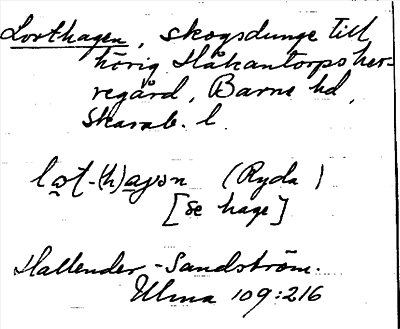 Lorthagen, skogsdunge till
hörig Håkantorps her-
regård, Barne hd,
Skarab. l.
lo̲t-(h)a̲gən (Ryda)
[se hage]
Hallender-Sandström.
Ulma 109:216